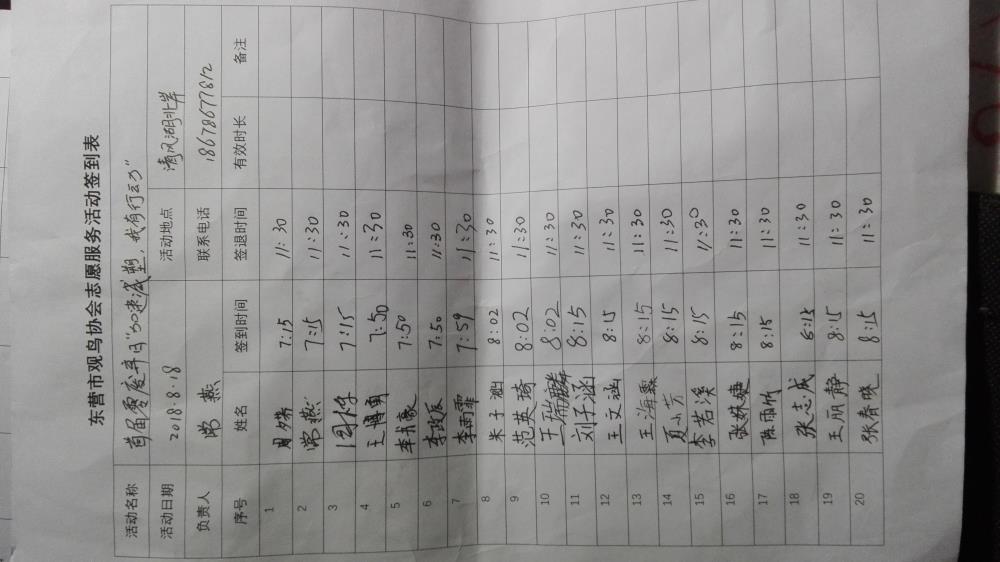 东营市观鸟协会志愿服务活动签到表
活动名称 首届零废弃日"加速减塑,我有行动"
活动日期 2018·8·18 活动地点 清风湖北岸
负责人 常燕 联系电话 18678677812
序号 姓名 签到时间 签退时间 有效时长 备注
1 7:15 11:30
2 常燕 7:15 11:30
3 7:15 11:30
4 王博 7:50 11:30
5 李 7:50 11:30
6 李 7:50 11:30
7 李雨霏 7:59 11:30
8 朱子涵 8:02 11:30
9 范英琦 8:02 11:30
10 王瑞麟 8:02 11:30
11 刘子涵 8:15 11:30
12 王文涵 8:15 11:30
13 王海霞 8:15 11:30
14 夏小芳 8:15 11:30
15 李若溪 8:15 11:30
16 张婕 8:15 11:30
17 陈雨竹 8:15 11:30
18 张志成 8:15 11:30
19 王丽静 8:15 11:30
20 张春晓 8:15 11:30